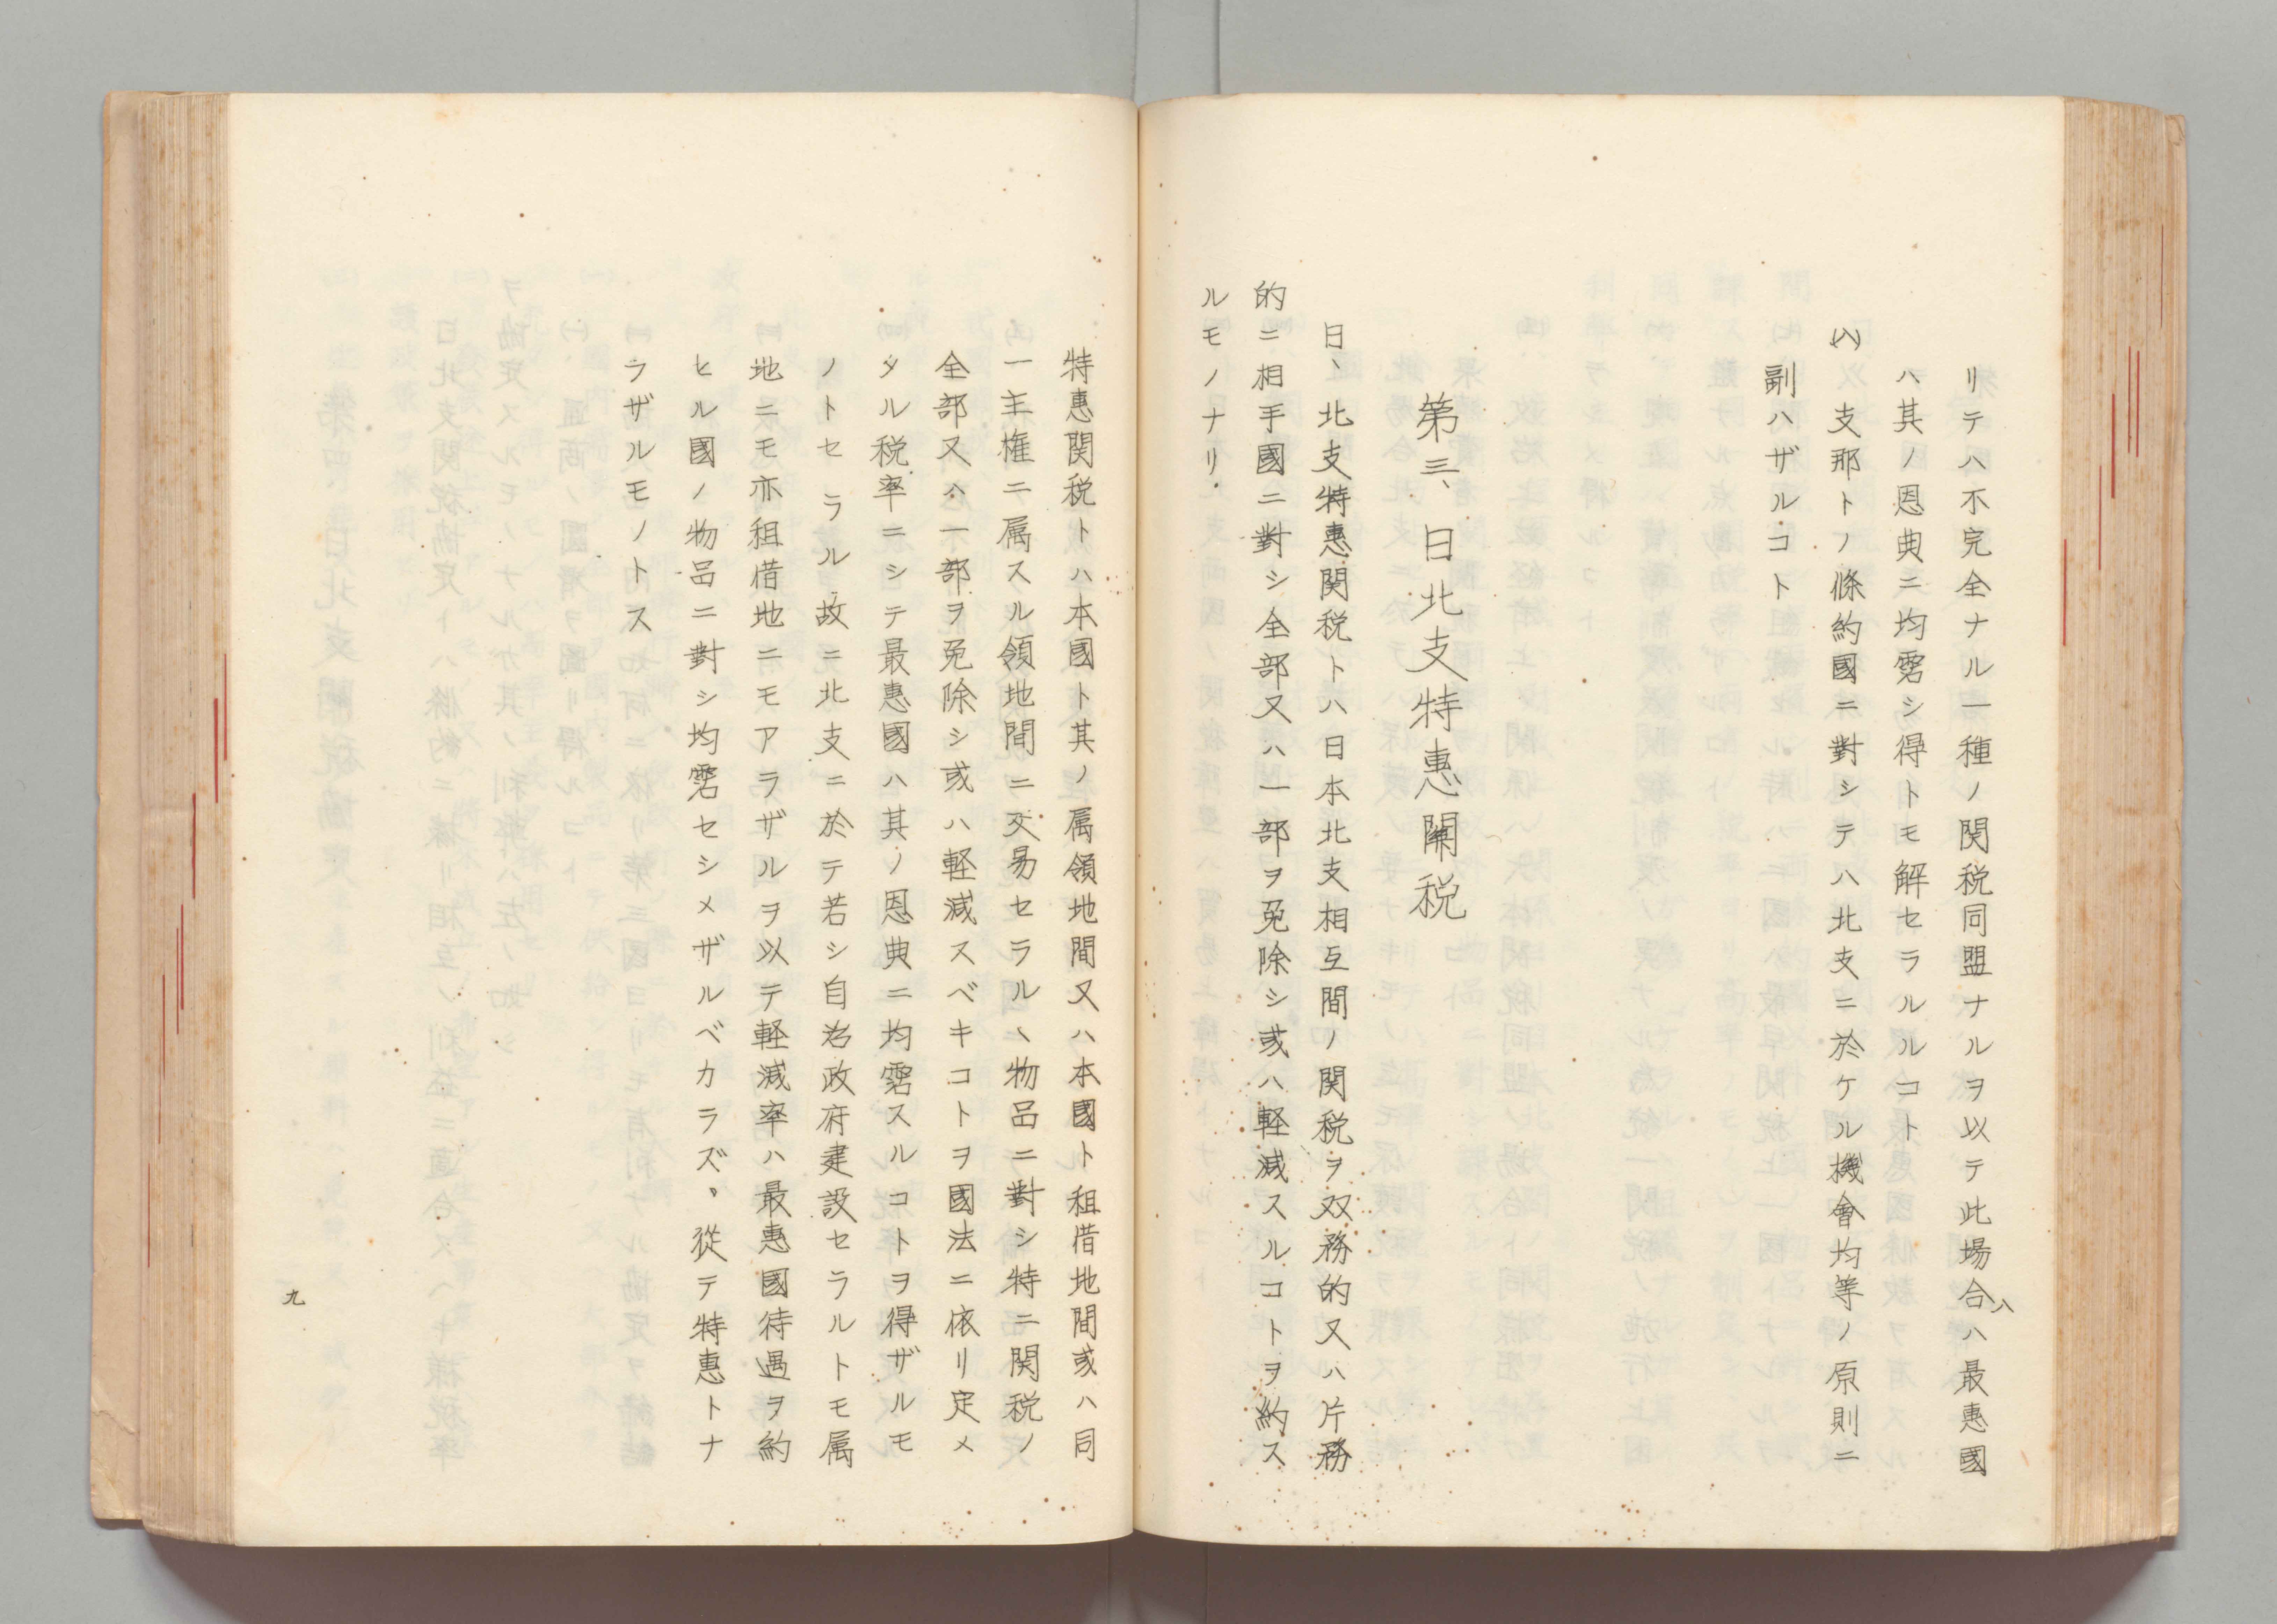 リテハ不完全ナル一種ノ関税同盟ナルヲ以テ此場合ハ最惠國
ハ其ノ恩典ニ均霑シ得トモ解セラルルコト
(八) 支那トノ條約國ニ對シテハ北支ニ於ケル機會均等ノ原則ニ
副ハザルコト
第三、日北支特惠関税
日、北支特惠関税トハ日本北支相互間ノ関税ヲ双務的又ハ片務
的ニ相手國ニ對シ全部又ハ一部ヲ免除シ或ハ軽減スルコトヲ約ス
ルモノナリ.
八
特惠関税トハ本國ト其ノ属領地間又ハ本國ト租借地間或ハ同
一主権ニ属スル領地間ニ交易セラルヽ物品ニ對シ特ニ関税ノ
全部又ハ一部ヲ免除シ或ハ軽減スベキコトヲ國法ニ依リ定メ
タル税率ニシテ最惠國ハ其ノ恩典ニ均霑スルコトヲ得ザルモ
ノトセラル故ニ北支ニ於テ若シ自治政府建設セラルトモ属
地ニモ亦租借地ニモアラザルヲ以テ軽減率ハ最惠國待遇ヲ約
ヒル國ノ物品ニ對シ均霑セシメザルベカラズ、從テ特惠トナ
ラザルモノトス
九